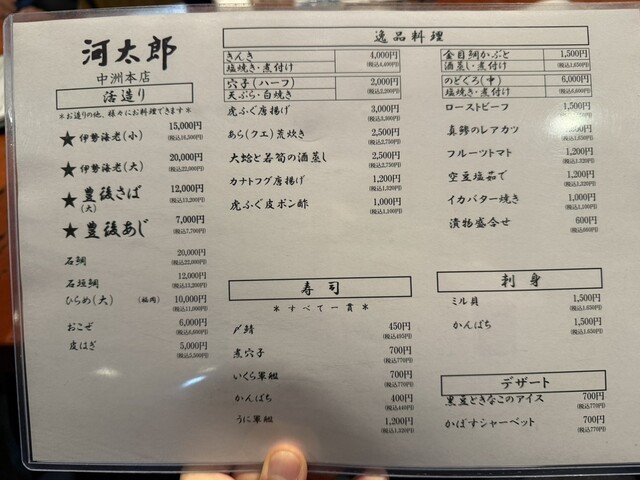 河太郎
中洲本店
活造り
*お造りの他、様々にお料理できます*
★ 伊勢海老(小) 15,000円
(税込16,500円)
★ 伊勢海老(大) 20,000円
(税込22,000円)
★ 豊後さば 12,000円
(大) (税込13,200円)
★ 豊後あじ 7,000円
(税込7,700円)
石鯛 20,000円
(税込22,000円)
石垣鯛 12,000円
(税込13,200円)
ひらめ(大) (福岡) 10,000円
(税込11,000円)
おこぜ 6,000円
(税込6,600円)
皮はぎ 5,000円
(税込5,500円)
逸品料理
きんき 4,000円
塩焼き・煮付け (税込4,400円)
穴子(ハーフ) 2,000円
天ぷら・白焼き (税込2,200円)
虎ふぐ唐揚げ 3,000円
(税込3,300円)
あら(クエ)荒炊き 2,500円
(税込2,750円)
大蛤と若筍の酒蒸し 2,500円
(税込2,750円)
カナトフグ唐揚げ 1,200円
(税込1,320円)
虎ふぐ皮ポン酢 1,000円
(税込1,100円)
金目鯛かぶと 1,500円
酒蒸し・煮付け (税込1,650円)
のどくろ(中) 6,000円
塩焼き・煮付け (税込6,600円)
ローストビーフ 1,500円
真鯵のレアカツ
フルーツトマト 1,200円
(税込1,320円)
空豆塩茹で 1,200円
(税込1,320円)
イカバター焼き 1,000円
(税込1,100円)
漬物盛合せ 600円
(税込660円)
寿司
*すべて一貫*
〆鯖 450円
(税込495円)
煮穴子 700円
(税込770円)
いくら軍艦 700円
(税込770円)
かんぱち 400円
(税込440円)
うに軍艦 1,200円
(税込1,320円)
刺身
ミル貝 1,500円
(税込1,650円)
かんぱち 1,500円
(税込1,650円)
デザート
黒豆ときなこのアイス 700円
(税込770円)
かぼすシャーベット 700円
(税込770円)